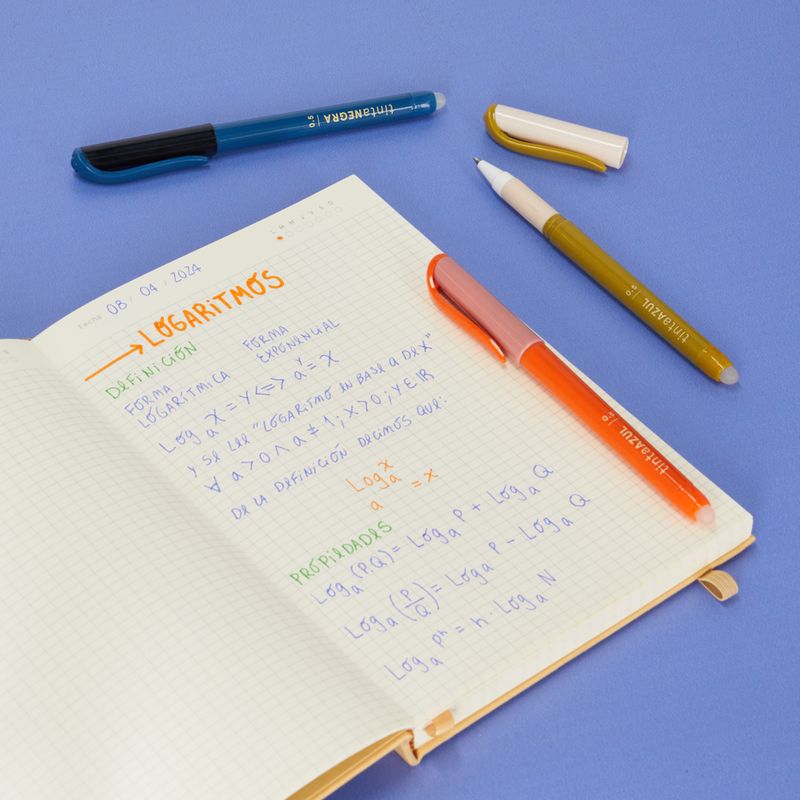 tintaNEGRA 0.5
LMMJVSD
Fecha 08 / 04 / 2024
LOGARITMOS
DEFINICIÓN
FORMA LOGARITMICA FORMA EXPONENCIAL
Log a X = Y <=> a^Y = X
Y SE LEE "LOGARITMO EN BASE A DE X"
∀ a > 0 ∧ a ≠ 1 ; X > 0 ; Y ∈ IR
DE LA DEFINICIÓN DECIMOS QUE:
a^(Log a X) = X
PROPIEDADES
Log a (P.Q) = Log a P + Log a Q
Log a (P/Q) = Log a P - Log a Q
Log a P^n = n . Log a N
tintaAZUL 0.5
tintaAZUL 0.5